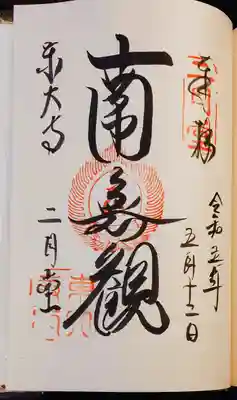 奉拝
令和五年
五月十二日
南無觀
東大寺
二月堂